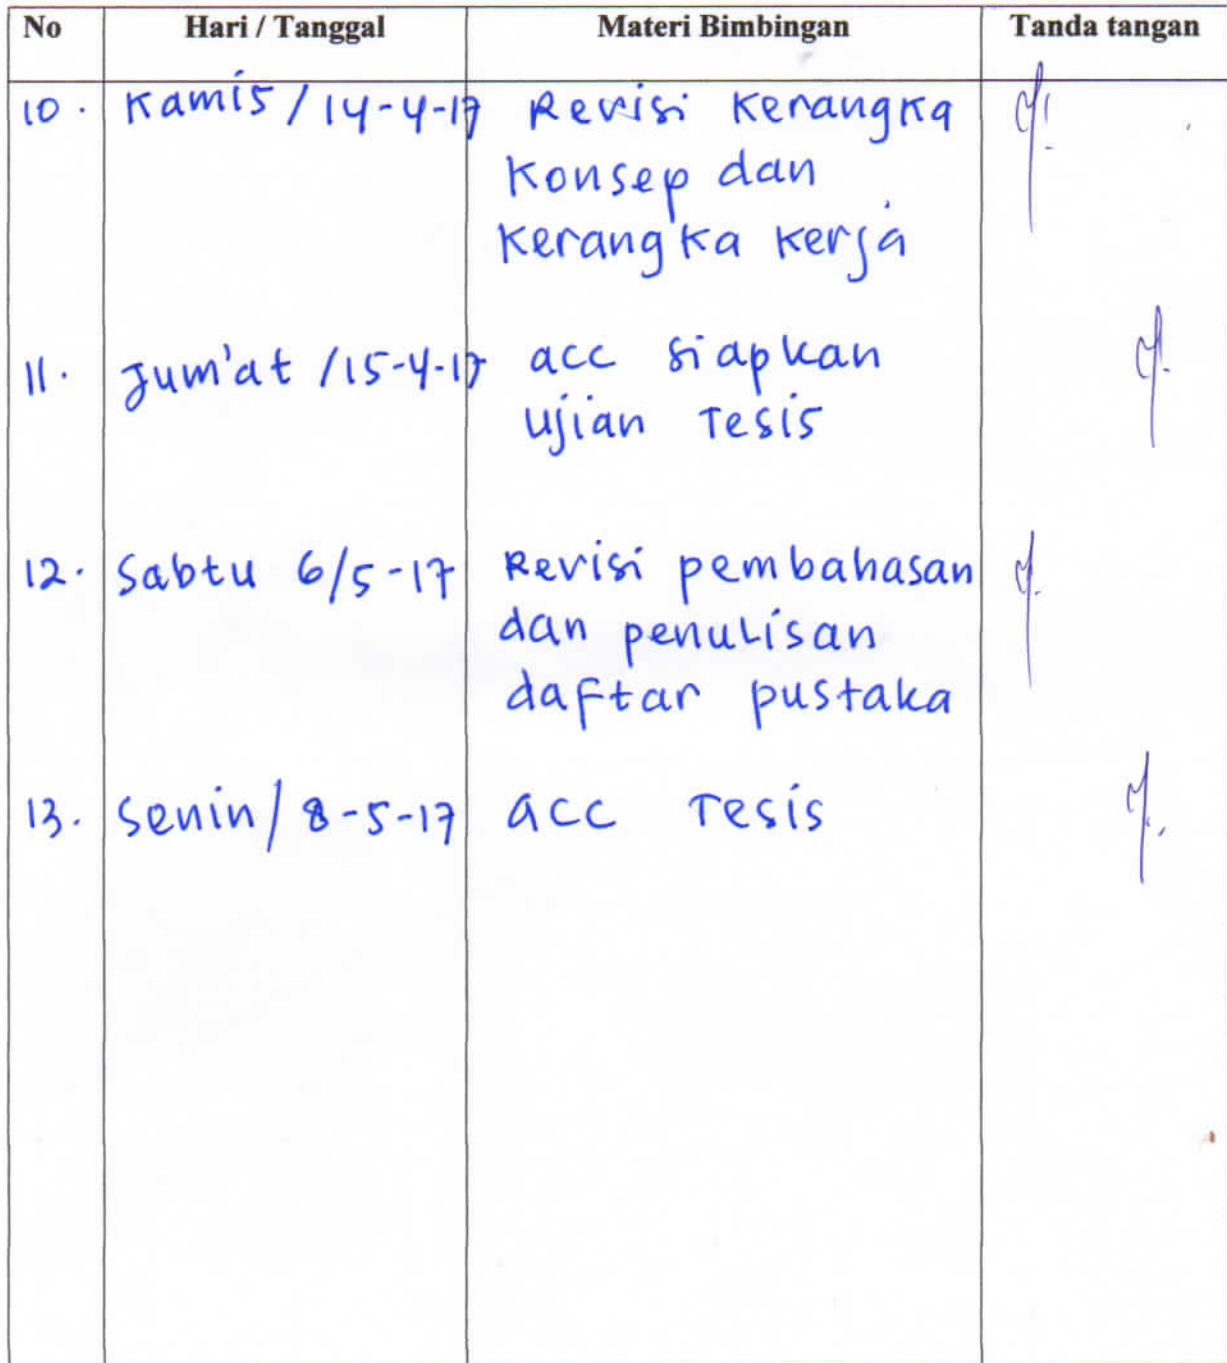 No Hari / Tanggal Materi Bimbingan Tanda tangan
10. Kamis / 14-4-17 Revisi Kerangka
Konsep dan
Kerangka Kerja
11. Jum'at / 15-4-17 acc siapkan
Ujian Tesis
12. Sabtu 6/5-17 Revisi pembahasan
dan penulisan
daftar pustaka
13. Senin / 8-5-17 acc Tesis